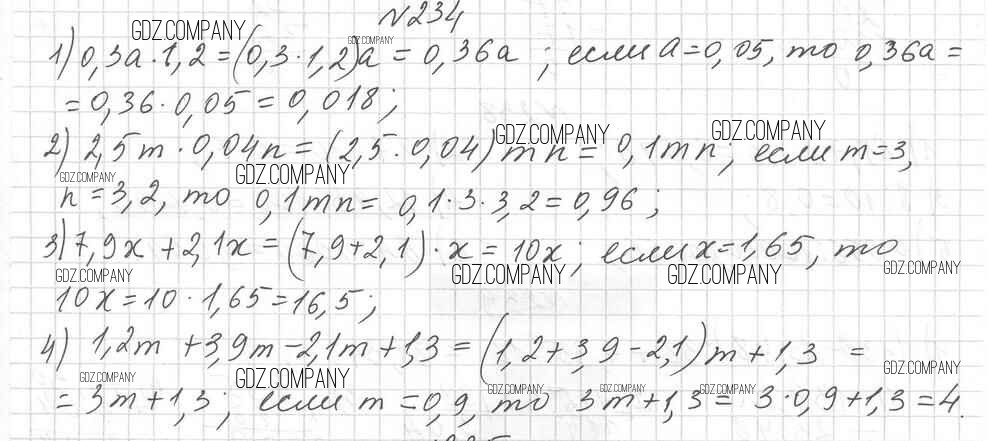 N234
GDZ.COMPANY
GDZ.COMPANY
1) 0,3a·1,2=(0,3·1,2)a = 0,36a ; если a=0,05, то 0,36a =
= 0,36·0,05 = 0,018;
GDZ.COMPANY GDZ.COMPANY
2) 2,5m·0,04n = (2,5·0,04)mn = 0,1mn; если m=3,
GDZ.COMPANY GDZ.COMPANY
n=3,2, то 0,1mn= 0,1·3·3,2=0,96 ;
3) 7,9x + 2,1x = (7,9+2,1)·x = 10x; если x=1,65, то
GDZ.COMPANY GDZ.COMPANY GDZ.COMPANY GDZ.COMPANY
10x=10·1,65=16,5;
4) 1,2m +3,9m-2,1m+1,3 = (1,2+3,9-2,1)m+1,3 =
GDZ.COMPANY GDZ.COMPANY GDZ.COMPANY GDZ.COMPANY GDZ.COMPANY GDZ.COMPANY
= 3m+1,3; если m=0,9, то 3m+1,3= 3·0,9+1,3=4.